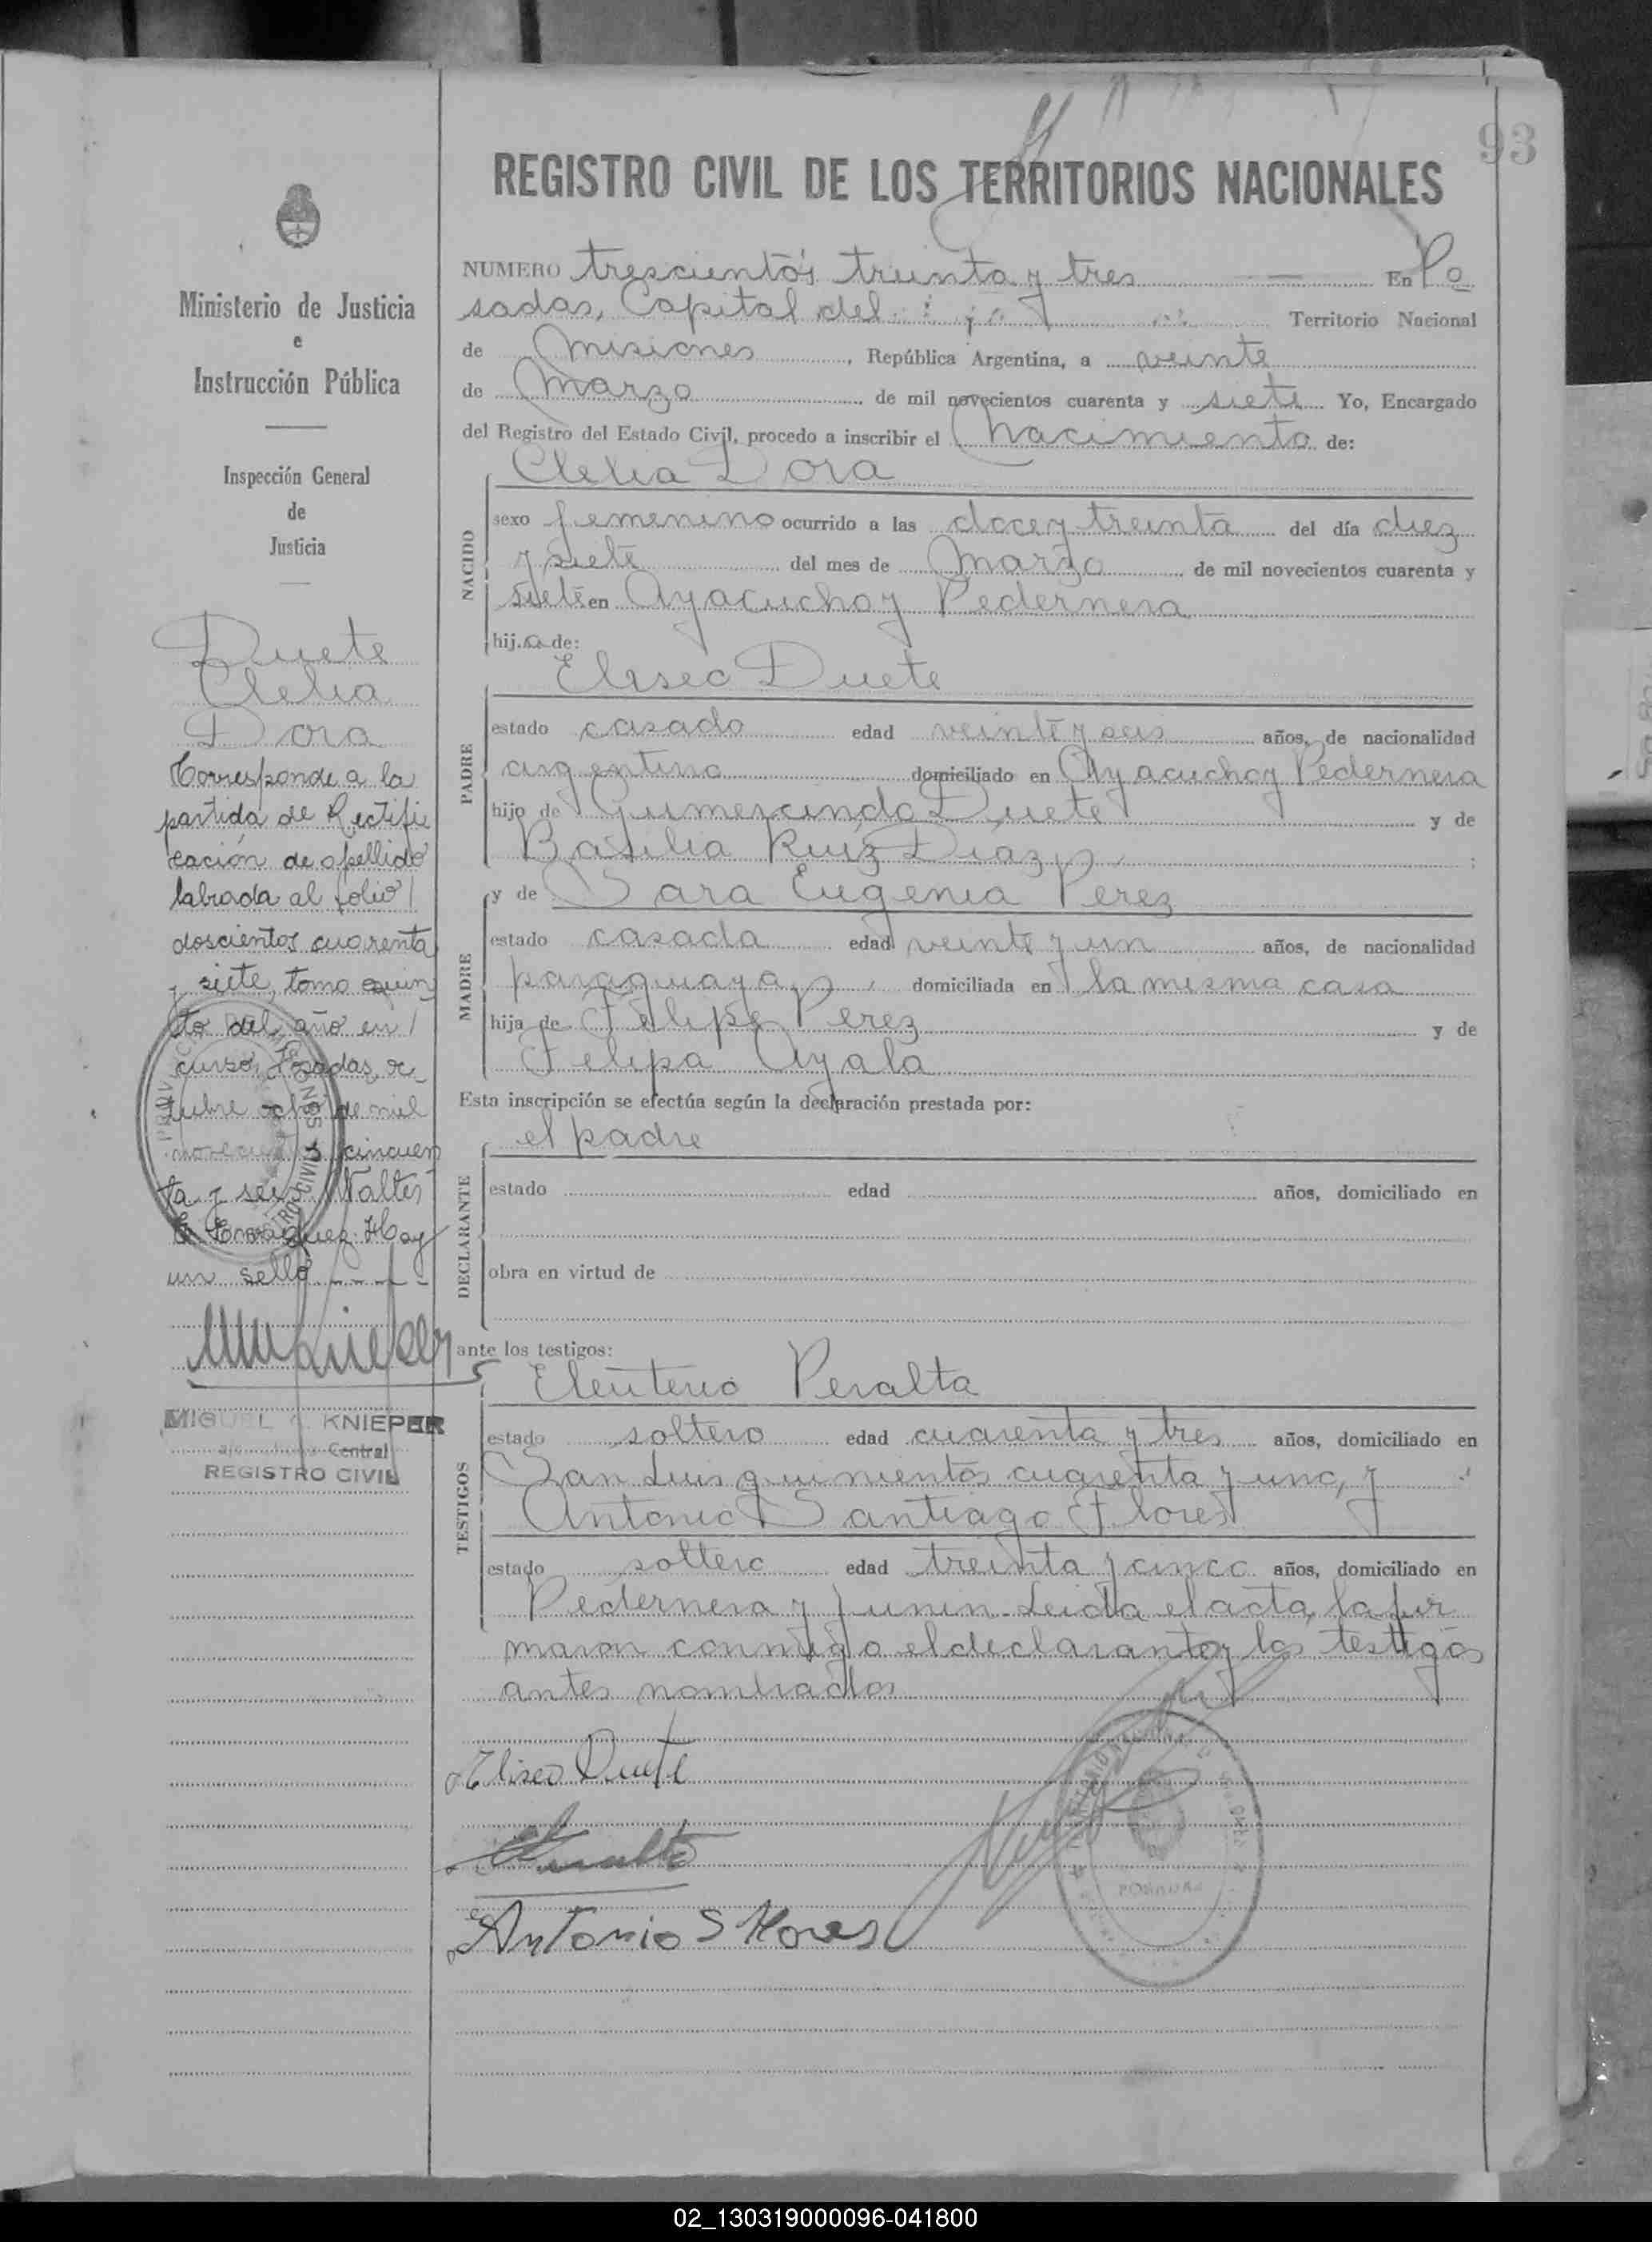 93
REGISTRO CIVIL DE LOS TERRITORIOS NACIONALES
Ministerio de Justicia
e
Instrucción Pública
Inspección General
de
Justicia
Duete
Clelia
Dora
Corresponde a la
partida de Rectifi
cación de apellido
labrada al folio
doscientos cuarenta
y siete, tomo quin
to del año en
curso, Posadas, oc
tubre ocho de mil
novecientos cincuen
ta y seis Walter
Hay
un sello
MIGUEL A. KNIEPER
Central
REGISTRO CIVIL
NUMERO trescientos treinta y tres En Po
sadas, Capital del Territorio Nacional
de Misiones, República Argentina, a veinte
de Marzo de mil novecientos cuarenta y siete Yo, Encargado
del Registro del Estado Civil, procedo a inscribir el Nacimiento de:
NACIDO
Clelia Dora
sexo femenino ocurrido a las doce y treinta del día diez
y siete del mes de Marzo de mil novecientos cuarenta y
siete en Ayacucho y Pedernera
hija de:
PADRE
Eliseo Duete
estado casado edad veinte y seis años, de nacionalidad
argentina domiciliado en Ayacucho y Pedernera
hijo de Gumercindo Duete y de
Basilia Ruiz Diaz
MADRE
y de Sara Eugenia Perez
estado casada edad veinte y un años, de nacionalidad
paraguaya, domiciliada en la misma casa
hija de Felipe Perez y de
Felipa Ayala
Esta inscripción se efectúa según la declaración prestada por:
DECLARANTE
el padre
estado edad años, domiciliado en
obra en virtud de
ante los testigos:
TESTIGOS
Eleuterio Peralta
estado soltero edad cuarenta y tres años, domiciliado en
San Luis quinientos cuarenta y uno, y
Antonio Santiago Flores
estado soltero edad treinta y cinco años, domiciliado en
Pedernera y Junin. Leida el acta, la fir
maron conmigo el declarante y los testigos
antes nombrados
Eliseo Duete
EPeralta
Antonio S Flores
POSADAS
02_130319000096-041800